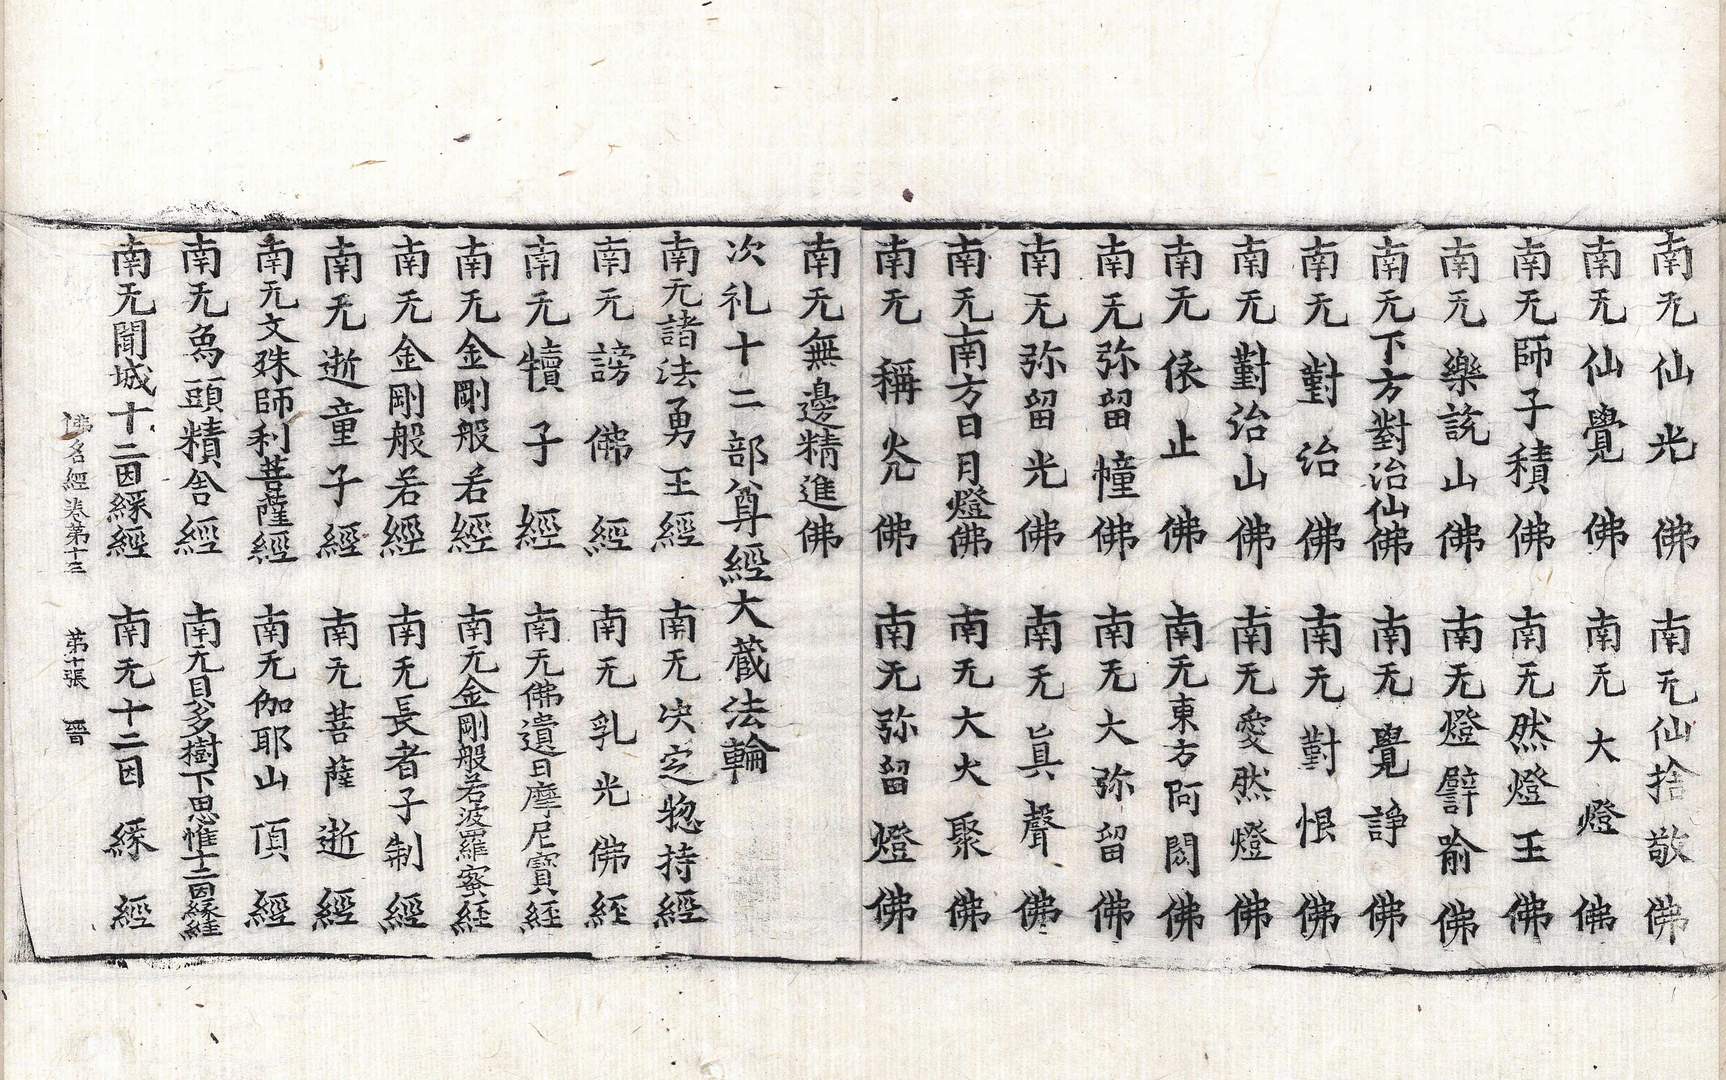 南无仙光佛　南无仙捨敬佛
南无仙覺佛　南无大燈佛
南无師子積佛　南无然燈王佛
南无樂說山佛　南无燈譬喻佛
南无下方對治仙佛　南无覺諍佛
南无對治佛　南无對恨佛
南无對治山佛　南无愛然燈佛
南无依止佛　南无東方阿閦佛
南无弥留幢佛　南无大弥留佛
南无弥留光佛　南无眞聲佛
南无南方日月燈佛　南无大火聚佛
南无稱炎佛　南无弥留燈佛
南无無邊精進佛
次礼十二部尊經大藏法輪
南无諸法勇王經　南无决定惣持經
南无謗佛經　南无乳光佛經
南无犢子經　南无佛遺日摩尼寶經
南无金剛般若經　南无金剛般若波羅蜜經
南无金剛般若經　南无長者子制經
南无逝童子經　南无菩薩逝經
南无文殊師利菩薩經　南无伽耶山頂經
南无象頭精舍經　南无貝多樹下思惟十二因緣經
南无聞城十二因緣經　南无十二因緣經
佛名經卷第十三　第十張　晉